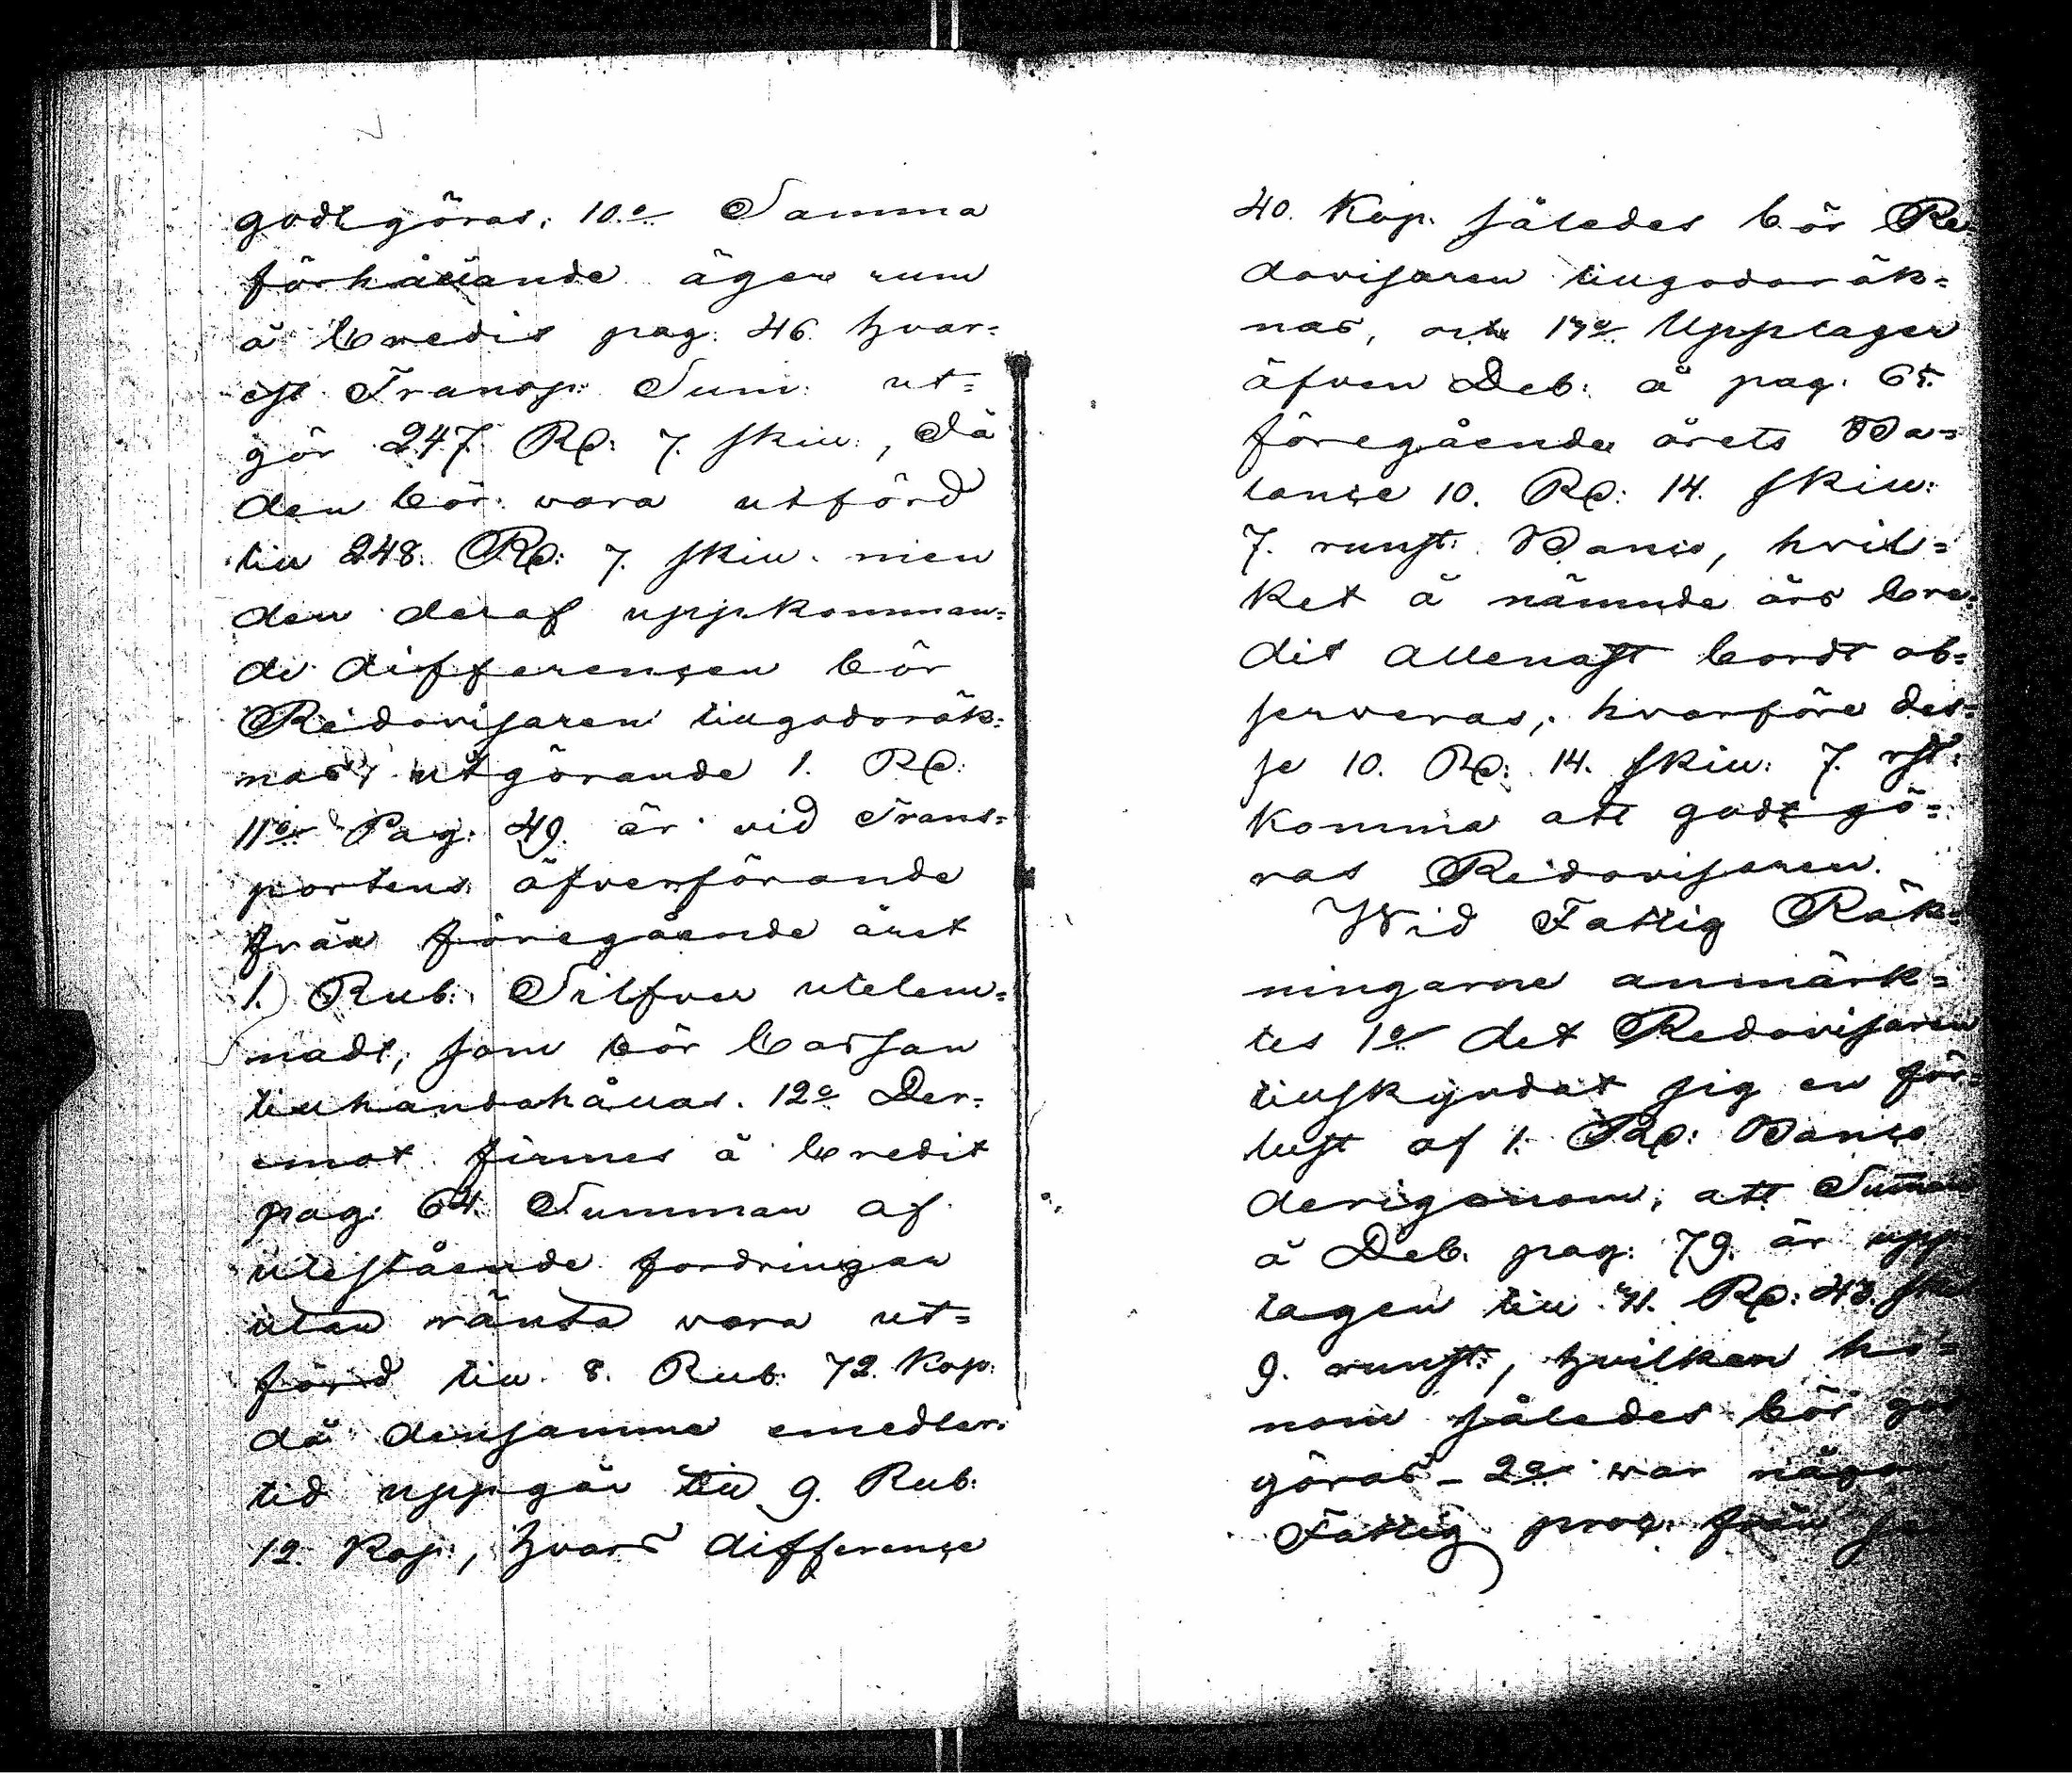 godtgöras; 10:o Samma
förhållande äger rum
å Credit pag: 46. hvar-
est Transp: Sum: ut-
gör 247. RD: 7. skill:, då
den bör vara utförd
till 248. RD: 7. skill. men
den deraf uppkomman-
de differencen bör
Redovisaren tillgodoräk-
nas, utgörande 1. RD:
11:o Pag: 49. är vid Trans-
portens öfverförande
från föregående året
1. Rub: Silfver utelem-
nadt, som bör Cassan
tillhandahållas. 12:o Der-
emot finnes å Credit
pag: 64. Summan af
utestående fordringar
utan ränta vara ut-
förd till 8. Rub: 72. Kop:
då densamma emedler-
tid uppgår till 9. Rub:
12. Kop:, hvars difference
40. Kop: således bör Re-
dovisaren tillgodoräk-
nas, och 13:o Upptager
äfven Deb: å pag: 65.
föregående årets Ba-
lance 10. RD: 14. skill:
7. runst: Banco, hvil-
ket å nämnde års Cre-
dit allenast bordt ob-
serveras, hvarföre des-
se 10. RD: 14. skill: 7. rst:
komma att godtgö-
ras Redovisaren.
Wid Fattig Räk-
ningarne anmärk-
tes 1:o det Redovisaren
tillskyndat sig en för-
lust af 1. RD: Banco
derigenom, att Summan
å Deb. pag: 79. är upp
tagen till 41. RD: 43. skill
9. runst:, hvilken ho-
nom således bör god
göras - 2:o var någon
Fattig proc: från